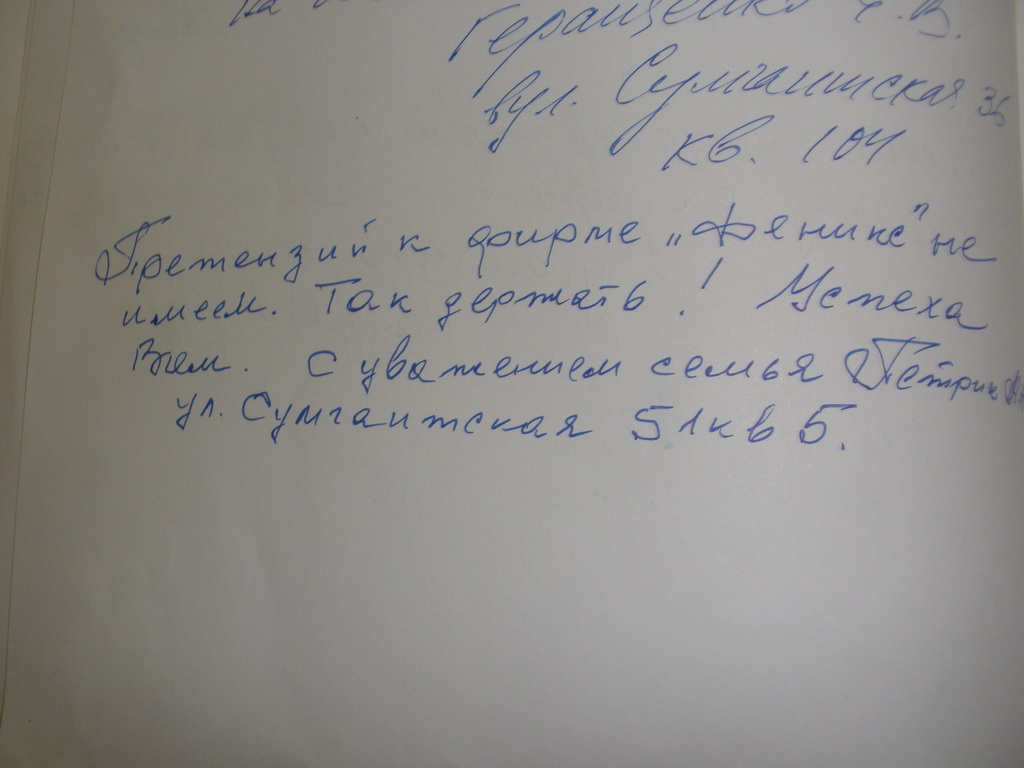 на
Геращенко Е.В.
вул. Сумгаитская 36
кв. 104
Претензий к фирме „Феникс" не
имеем. Так держать! Успеха
Всем. С уважением семья Петрик
ул. Сумгаитская 51 кв 5.